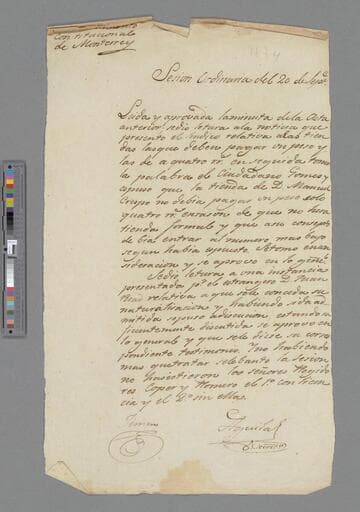 Constitucional
de Monterrey
Sesion Ordinaria del 20 de Sepe.
Leida y aprovada la minuta de la Acta
anterior, se dio letura a la noticia que
presento el Sindico relativa a las tien-
das las que deben pagar un peso y
las de a quatro rr. en seguida tomo
la palabra el Ciudadano Gomes y
espuso que la tienda de D. Manuel
Crespo no devia pagar un peso solo
quatro rr. en rason de que no hera
tienda formal y que a su consepto
debia entrar al numero mas bajo
segun havia espuesto. Se tomo en con-
sideracion y se aprovo en lo genl.
Se dio letura a una instancia
presentada pr. el estrangero D. Juan
relativa a que se le conceda su
naturalisacion y habiendo sido ad-
mitida se puso a discucion, estando su-
ficientemente discutida se aprovo en
lo general y que se le diese su corres-
pondiente testimonio. Y no habiendo
mas que tratar se lebanto la Sesion
no hasistieron los señores Regido-
res Coper y Romero el 1o. con licen-
cia y el 2o. sin ella.